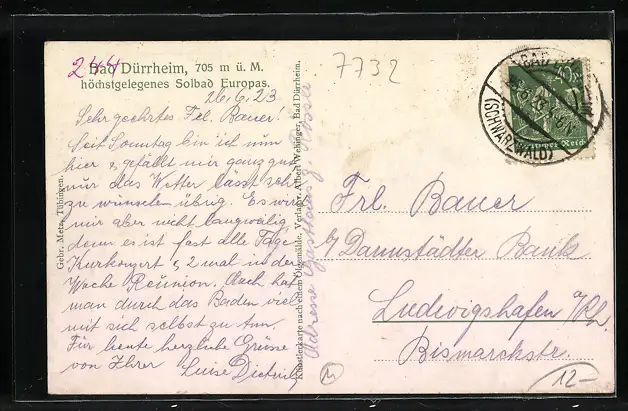 244
Bad Dürrheim, 705 m ü. M.
höchstgelegenes Solbad Europas.
26.6.23.
Sehr geehrtes Frl. Bauer!
Seit Sonntag bin ich nun
hier & gefällt mir ganz gut
nur das Wetter lässt sehr
zu wünschen übrig. Es wird
mir aber nicht langweilig,
denn es ist fast alle Tage
Kurkonzert & 2 mal in der
Woche Reunion. Auch hat
man durch das Baden viel
mit sich selbst zu tun.
Für heute herzliche Grüsse
von Ihrer Luise
Gebr. Metz, Tübingen.
Künstlerkarte nach einem Ölgemälde. Verlag v. Albert Wehinger, Bad Dürrheim.
Adresse Gasthaus z.
7732
BAD
(SCHWARZWALD)
Deutsches Reich
Frl. Bauer
b/ Darmstädter Bank
Ludwigshafen a/Rh.
Bismarckstr.
12-